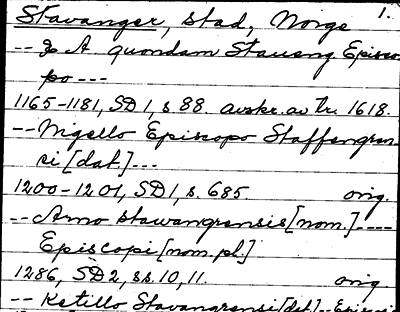 Stavanger, stad, Norge 1.
-- & A quondam Staueng Episco-
po ---
1165-1181, SD 1, s. 88. avskr. av Tr. 1618.
-- Nigello Episcopo Staffengren-
si [dat.] ---
1200-1201, SD 1, s. 685. orig.
-- Arno stawangrensis [nom.] ----
Episcopi [nom. pl.]
1286, SD 2, ss. 10, 11. orig.
-- Ketillo Stavangrensi [dat.] --